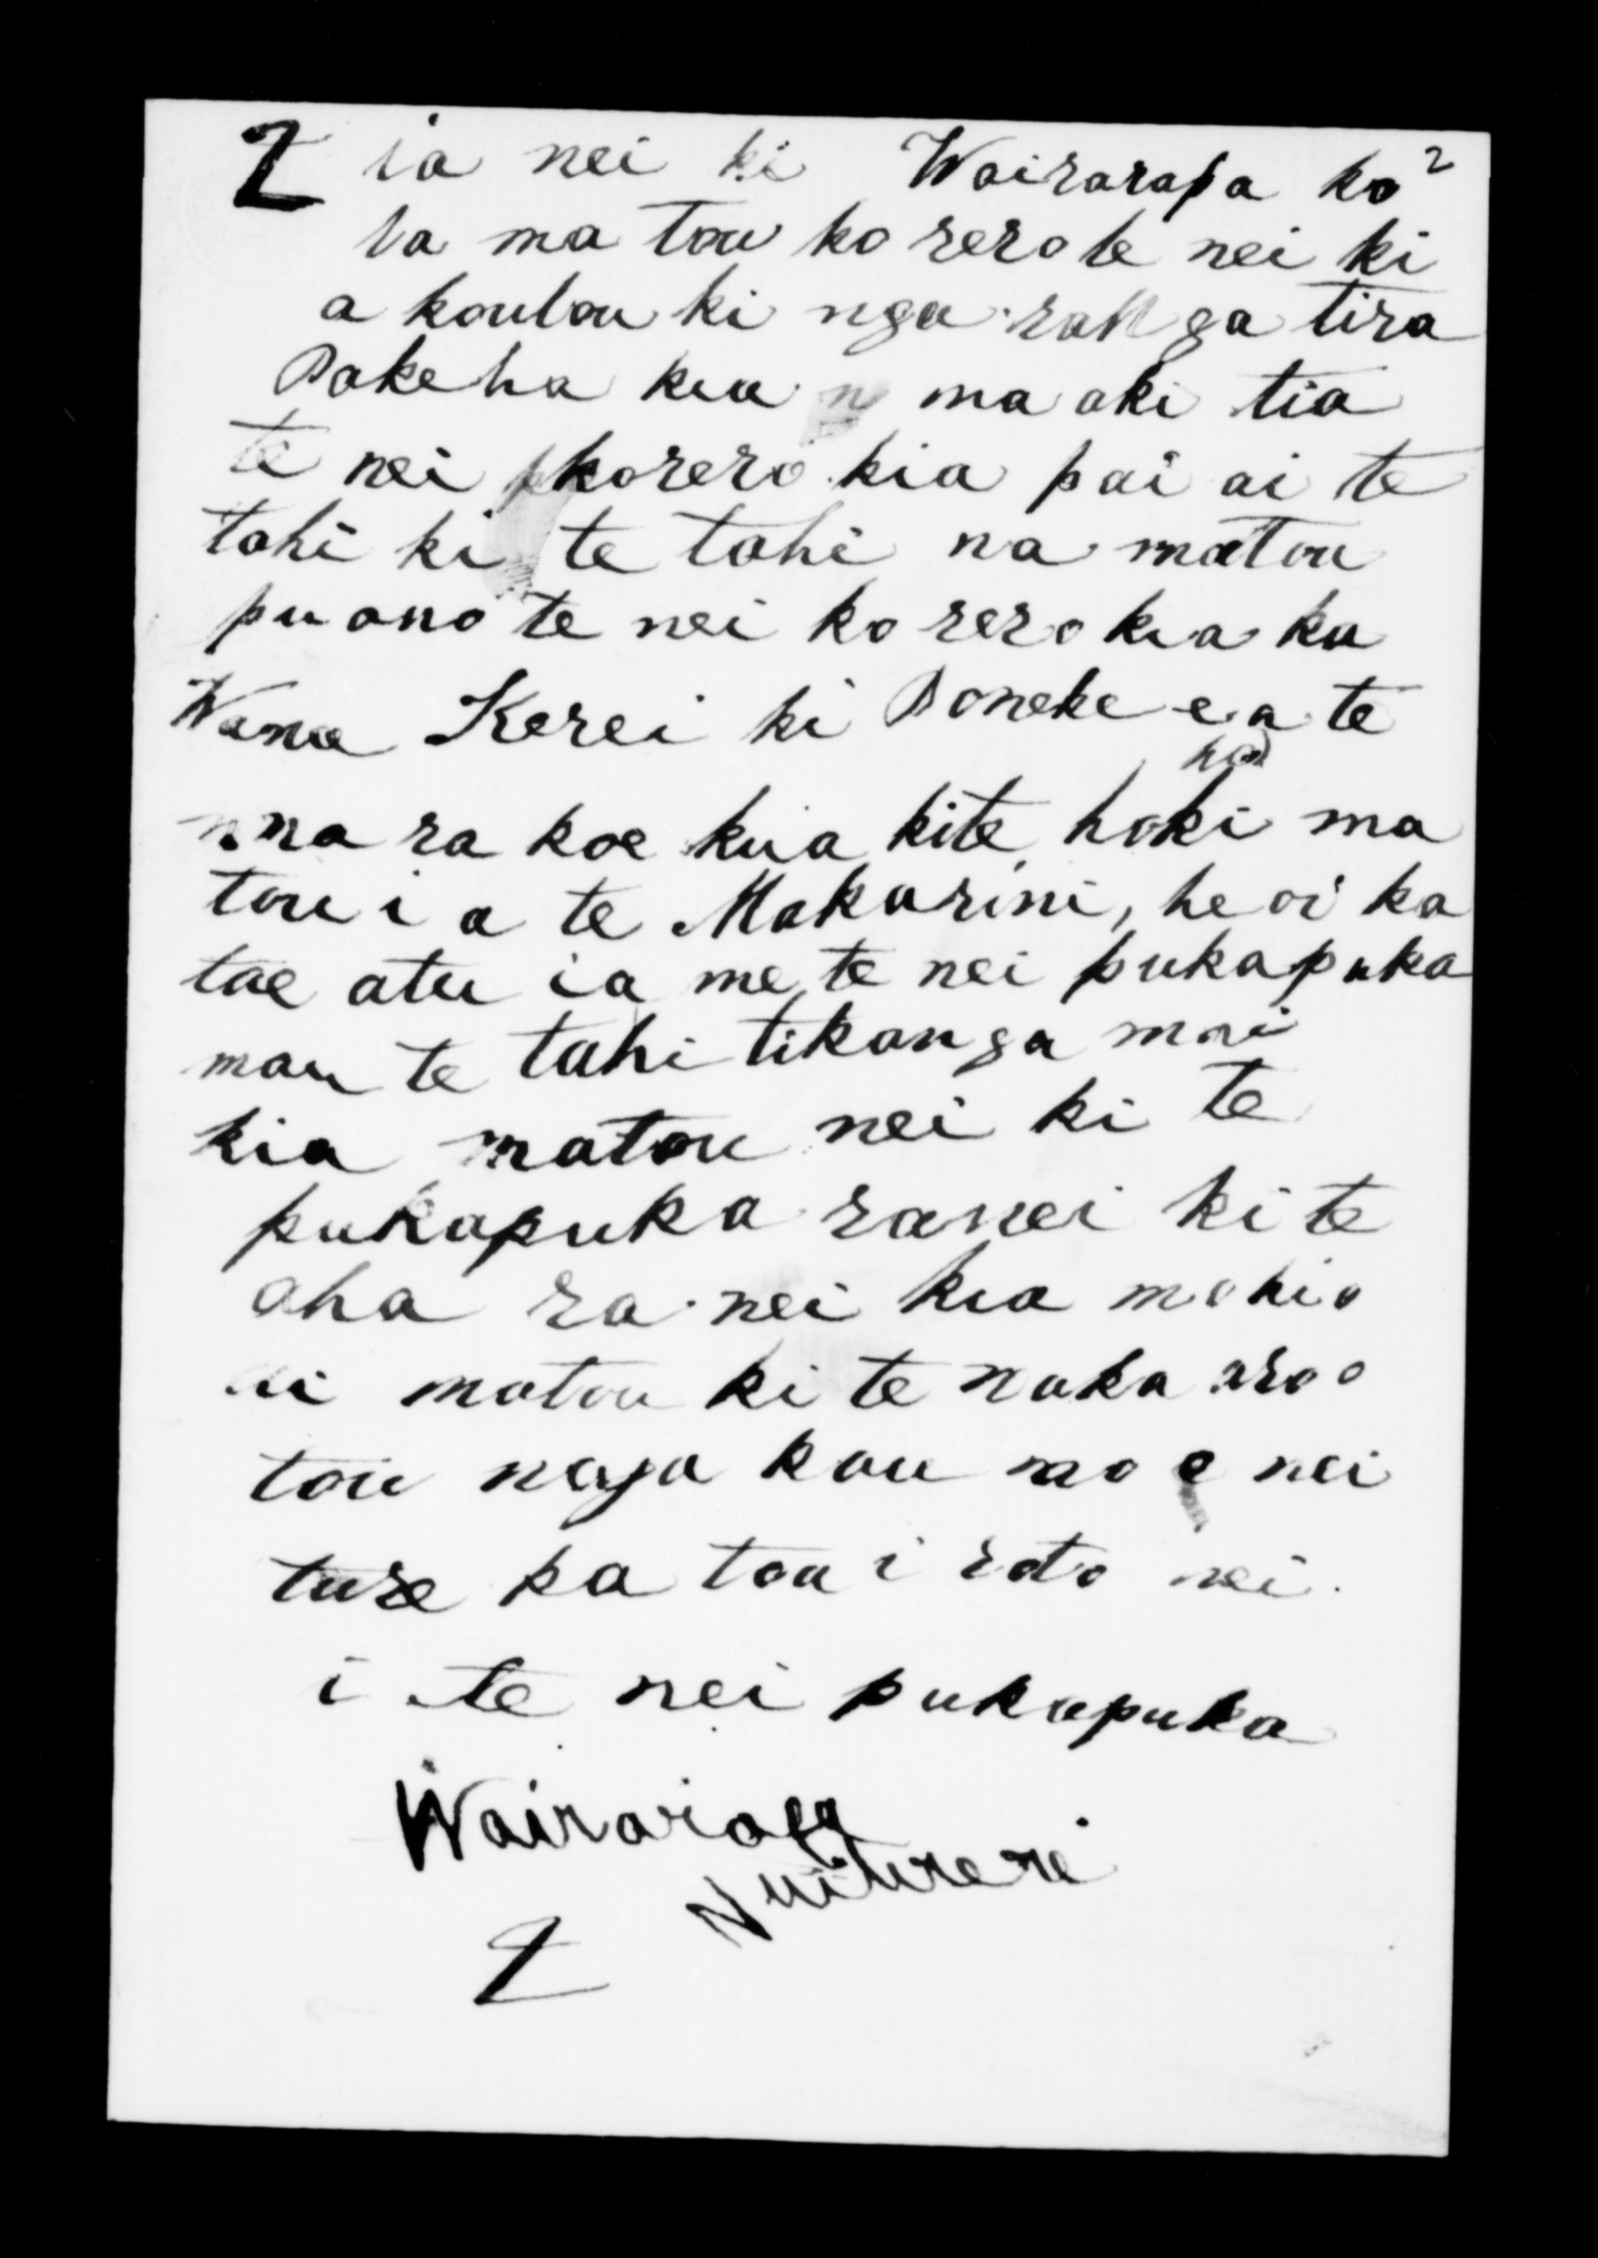 2 ia nei ki Wairarapa ko 2
ta ma tou ko rero te nei ki
a koutou ki nga rangatira
Pakeha kia ma aki tia
te nei korero kia pai ai te
tahi ki te tahi na matou
pu ano te nei ko rero kia ka
Wana Kerei ki Poneke e a te
hoi
nna ra koe kua kite hoki ma
tou i a te Makarini, he oi ka
tae atu ia me te nei pukapuka
mau te tahi tikanga mai
kia matou nei ki te
pukapuka ranei ki te
aha ra nei kia mohio
ai matou ki te naka aro o
tou ngakau mo e nei
ture ka tou i roto nei
i te nei pukapuka
Wairarapa
Nuitureni
2